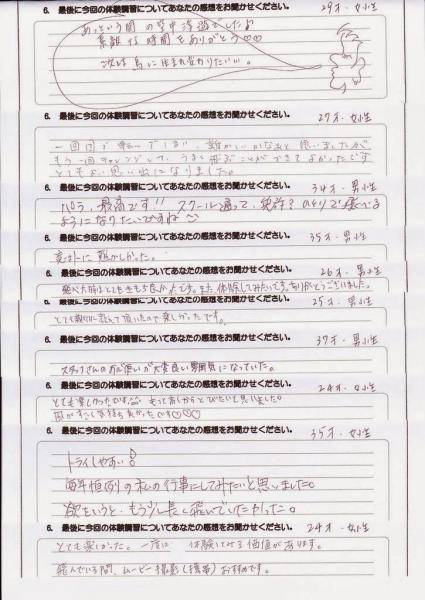 6. 最後に今回の体験講習についてあなたの感想をお聞かせください。 29才・女性
あっという間の空中浮遊でした♪
素敵な時間をありがとう♡♡
次は鳥に生まれ変わりたいい。
6. 最後に今回の体験講習についてあなたの感想をお聞かせください。 27才・女性
一回目で転んでしまい、難しいかなぁと思いましたが
もう一回チャレンジして、うまく飛ぶことができてよかったです
とてもよい思い出になりました。
6. 最後に今回の体験講習についてあなたの感想をお聞かせください。 34才・男性
パラ、最高です!! スクール通って、免許?
ようになりたいですね
6. 最後に今回の体験講習についてあなたの感想をお聞かせください。 35才・男性
意外に難しかった。
6. 最後に今回の体験講習についてあなたの感想をお聞かせください。 26才・男性
飛べた時はとても気持ち良かったです。また、体験してみたいです。ありがとうございました。
6. 最後に今回の体験講習についてあなたの感想をお聞かせください。 25才・男性
とても親切に教えて頂いたので楽しかったです。
6. 最後に今回の体験講習についてあなたの感想をお聞かせください。 37才・男性
スタッフさんの気遣いが大変良い雰囲気になっていた。
6. 最後に今回の体験講習についてあなたの感想をお聞かせください。 24才・女性
とても楽しかったです もっと高いからとびたいと思いました!
風がすごく気持ちよかったです♡♡♡
6. 最後に今回の体験講習についてあなたの感想をお聞かせください。 35才・女性
トライしやすい!
毎年恒例の私の行事にしてみたいと思いました。
欲をいうと・もう少し長く飛んでいたかったこ。
6. 最後に今回の体験講習についてあなたの感想をお聞かせください。 24才・女性
とても楽しかった。一度は 体験してみる価値があります。
飛んでいる間、ムービー撮影(携帯)おすすめです。